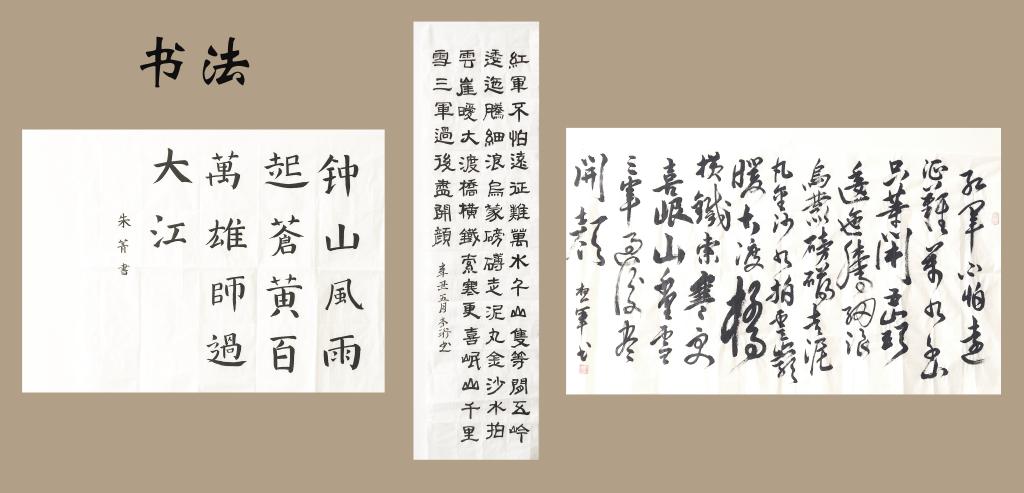 书法
钟山風雨
起蒼黄百
萬雄師過
大江
朱菁書
紅軍不怕遠征難萬水千山隻等閒五岭
逶迤騰細浪烏蒙磅礴走泥丸金沙水拍
雲崖暖大渡橋横鐵索寒更喜岷山千里
雪三軍過後盡開顔
辛丑五月
红軍不怕遠
征難萬水千山
只等閒五嶺
逶迤騰细浪
烏蒙磅礴走泥
丸金沙水拍雲巖
暖大渡橋
横鐵索寒更
喜岷山千里雪
三軍過後尽
開顔